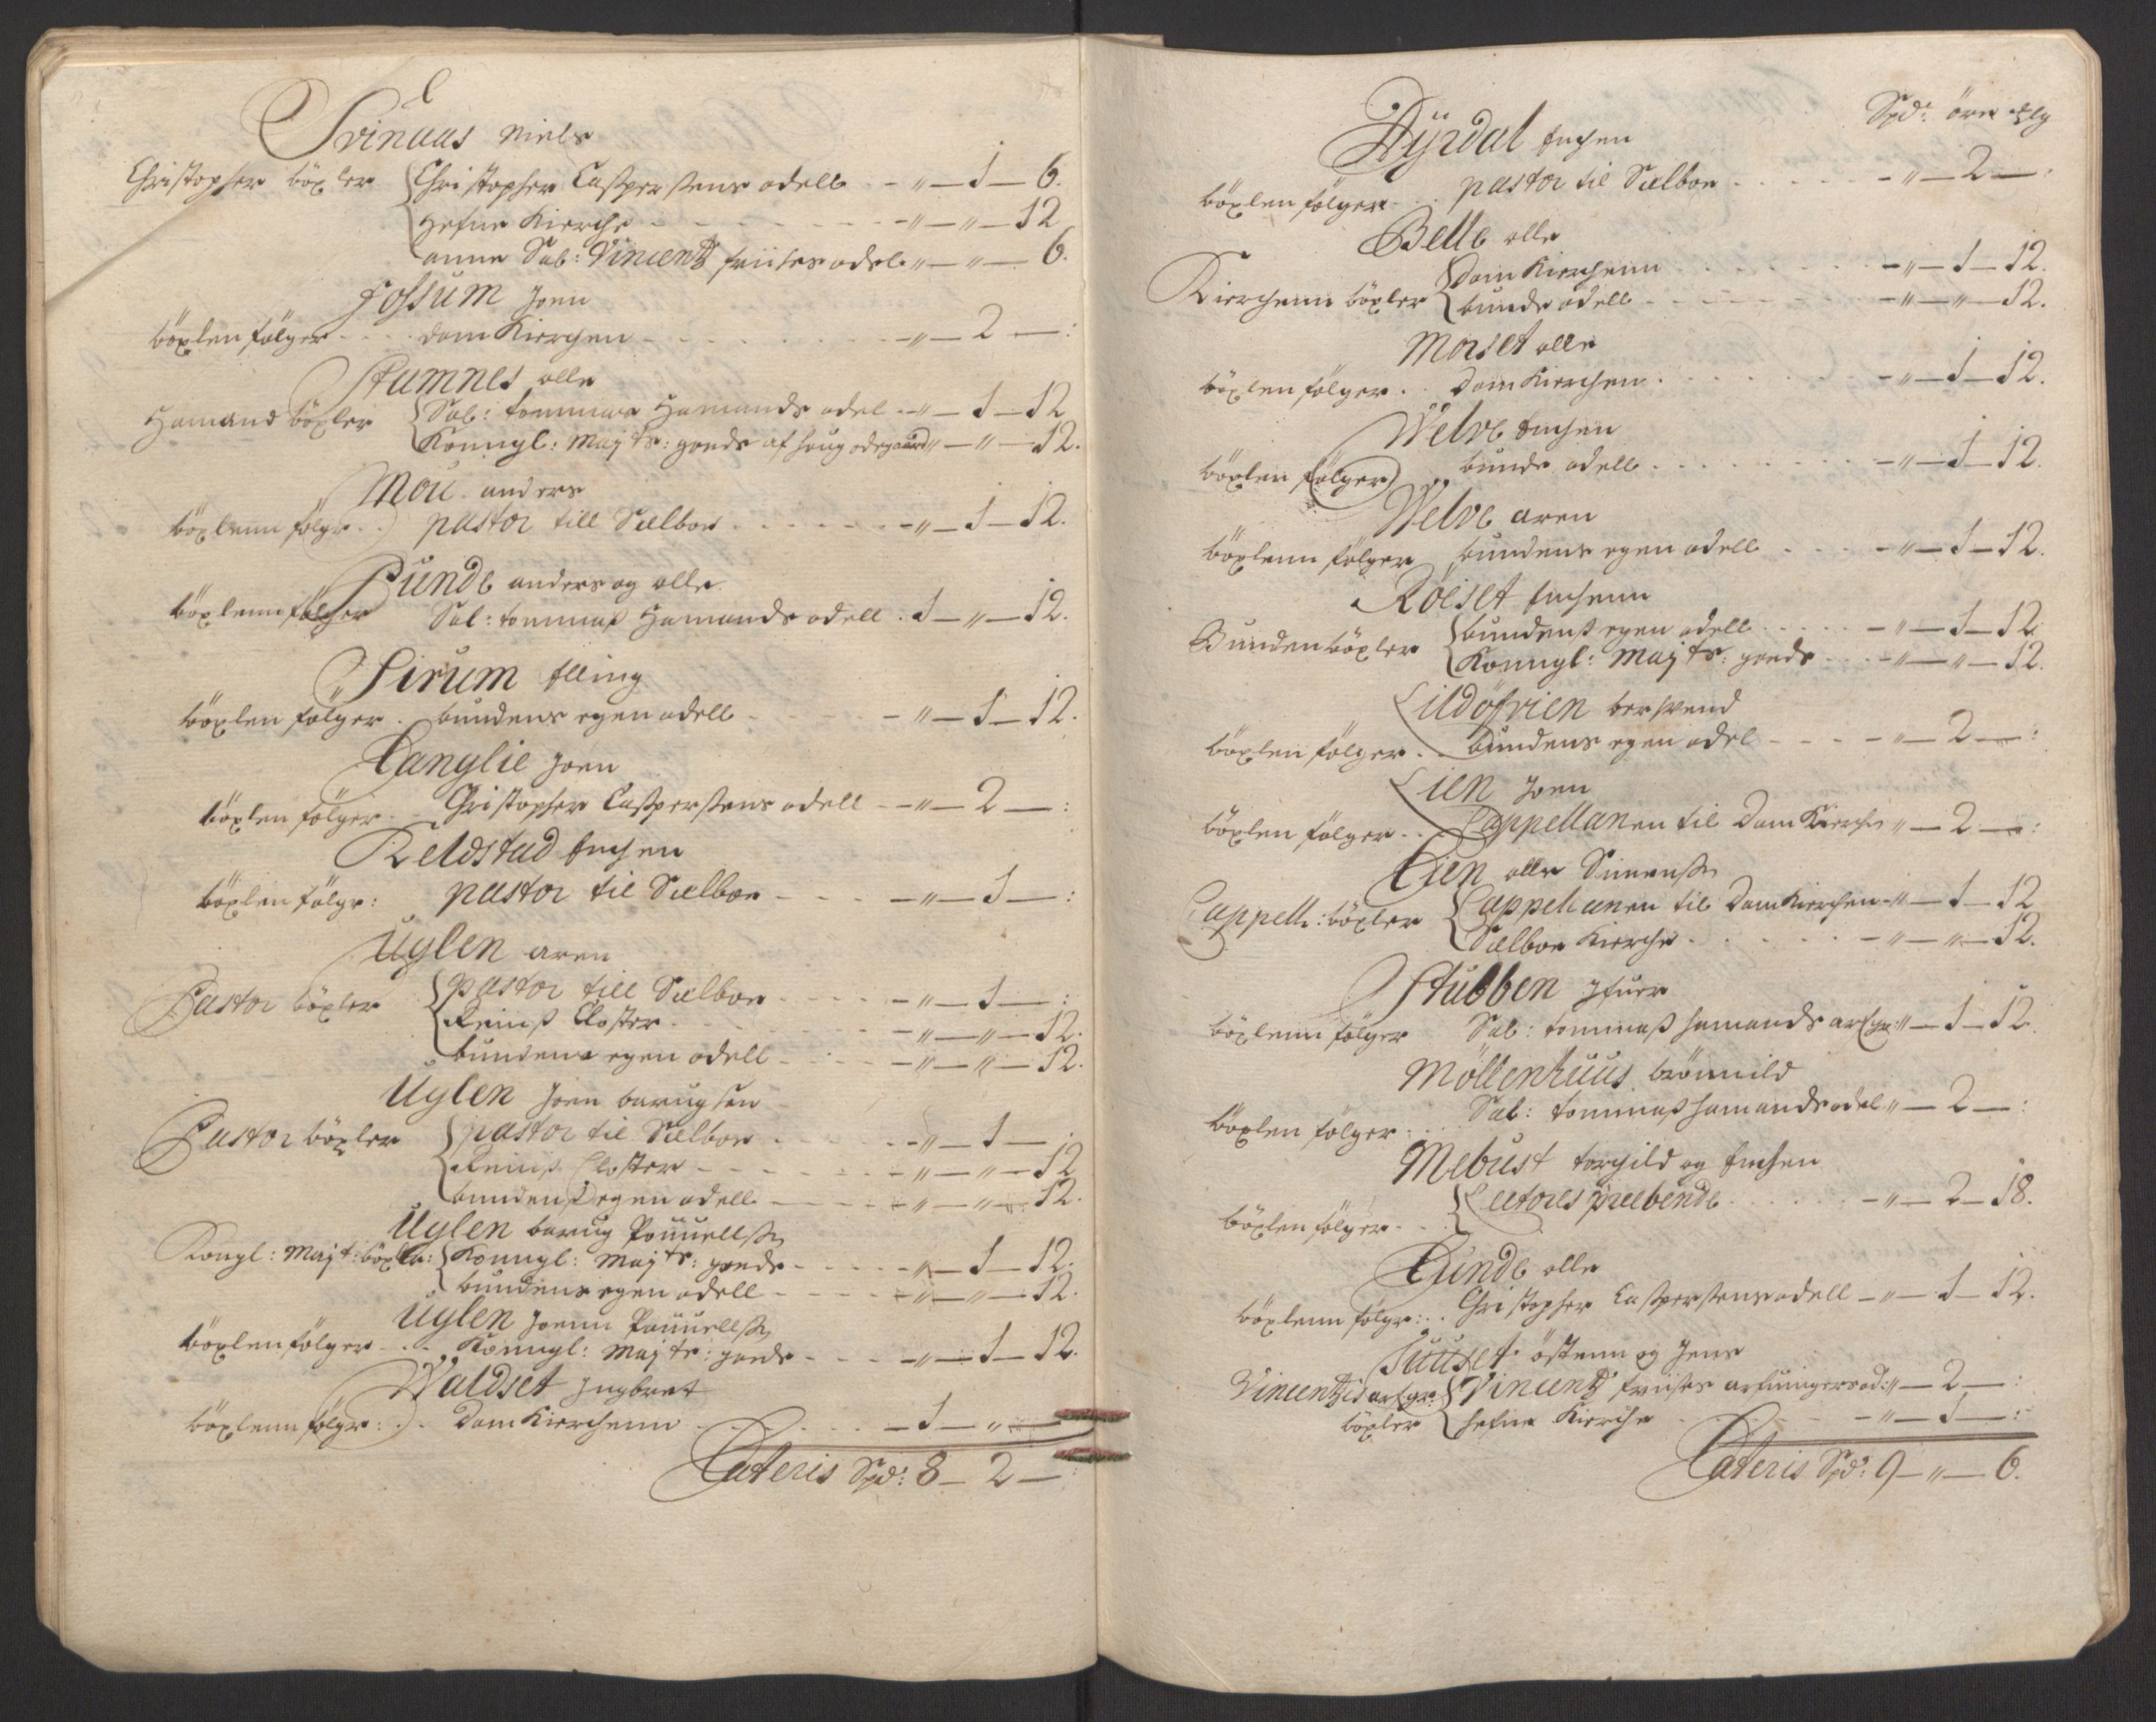 Svinaas Niels
Christopher böxler Christopher Caspersens odell - " - 1 - 6.
Hefne Kierche - " - " - 12
anne Sal: Vincentz friises odel " - " - 6.
Fossum Joen
böxlen følger domKierchen - " - 2 - :
Stamnes olle
Hamand böxler Sal: tommas Hamands odel - " - 1 - 12
Konngl: Maj ts: gods af haug odegaard " - " - 12.
Mou anders
böxlenn følgr pastor till Sælboe - " - 1 - 12.
Punde anders og olle
böxlenn følger Sal: tommas Hamands odell . 1 - " - 12.
Sirum Elling
böxlen følger . bundens egen odell - " - 1 - 12.
Langlie Joen
böxlen følger Christopher Caspersens odell - " - 2 - :
Keldstad Enchen
böxlen følgr: pastor til Sælboe - " - 1 - :
Uglen aren
Pastor böxler pastor till Sælboe - " - 1 - :
Reins Closter - " - " - 12.
bundens egen odell - " - " - 12.
Uglen Joen baarugsen
Pastor böxler pastor til Sælboe - " - 1 - :
Reins Closter - " - " - 12
bundens egen odell - " - " - 12.
Uglen baarug Pouuells:
Kongl: Majt: böxler: Konngl: Maj ts: gods - " - 1 - 12.
bundens egen odell - " - " - 12.
Uglen Joenn Pouuells:
böxlen følger Konngl: Maj ts: gods - " - 1 - 12.
Waldset Ingbret
böxlenn følgr: domKierchenn - 1 - "
Lateris Spd: 8 - 2 - :
Spd: öre mklg
Dyrdal Enchen
böxlen følger pastor til Sælboe - " - 2 - :
Belle olle
Kierchenn böxler DomKierchenn - " - 1 - 12.
bunde odell - " - " - 12.
Morset olle
böxlen følger . . DomKierchen - " - 1 - 12.
Welve Enchen
böxlen følger bunde odell - " - 1 - 12.
Welve aren
böxlenn følger bundens egen odell - " - 1 - 12.
Röeset Enchenn
Bunden böxler bundens egen odell - " - 1 - 12
Konngl: Maj ts: gods - " - " - 12.
Lildøfrien berSvend
böxlen følger . bundens egen odel - " - 2 - :
Lien Joen
böxlen følger . . Cappellanen til DomKierche " - 2 - :
Lien olle Simens:
Cappell: böxler Cappellanen til DomKierchen - " - 1 - 12
Sælboe Kierche - " - " - 12.
Stubben Jfuer
böxlenn følger Sal: tommas hamands arfgr: " - 1 - 12.
Möllenhuus brönnild
böxlen følger Sal: tommas hamands odel " - 2 - :
Mebust torchild og Enchen
böxlen følger Lectores præbende - " - 2 - 18.
Lunde olle
böxlenn følgr: . . Christopher Caspersens odell - " - 1 - 12.
Tuuset östenn og Jens
Vincentzis arfgr: Vincentz friises arfuingers od: " - 2 - :
böxler hefne Kierche - " - 1 - :
Lateris Spd: 9 - " - 6.